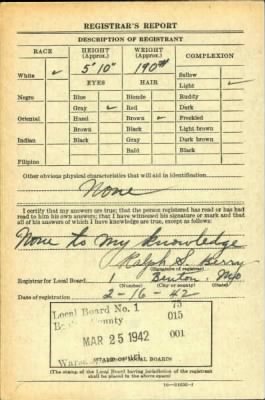 REGISTRAR'S REPORT
DESCRIPTION OF REGISTRANT
RACE HEIGHT (Approx.) WEIGHT (Approx.) COMPLEXION
5' 10" 190# Sallow
White ✓ EYES HAIR Light ✓
Negro Blue Blonde Ruddy
Gray ✓ Red Dark
Oriental Hazel Brown ✓ Freckled
Brown Black Light brown
Indian Black Gray Dark brown
Bald Black
Filipino
Other obvious physical characteristics that will aid in identification
None
I certify that my answers are true; that the person registered has read or has had
to read him his own answers; that I have witnessed his signature or mark and that
all of his answers of which I have knowledge are true, except as follows:
None to my knowledge
Ralph S. Berry
(Signature of registrar)
Registrar for Local Board 1 Benton, Mo
(Number) (City or county) (State)
Date of registration 2-16-42
Local Board No. 1 75
County 015
MAR 25 1942 001
STAMP OF LOCAL BOARD)
(The stamp of the Local Board having jurisdiction of the registrant
shall be placed in the above space)